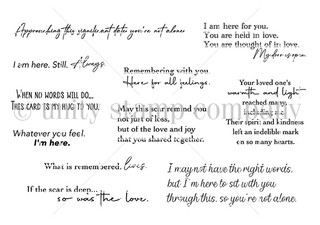 Approaching this significant date you're not alone
I am here for you.
You are held in love.
You are thought of in love.
My door is open.
I am here. Still. Always.
Remembering with you.
Here for all feelings.
WHEN NO WORDS WILL DO...
THIS CARD IS MY HUG TO YOU.
Your loved one's
warmth and light
reached many,
including me.
Their spirit and kindness
left an indelible mark
on so many hearts.
May this scar remind you
not just of loss,
but of the love and joy
that you shared together.
Whatever you feel.
I'm here.
© unity stamp company
What is remembered, lives.
If the scar is deep...
so was the love.
I may not have the right words,
but I'm here to sit with you
through this, so you're not alone.